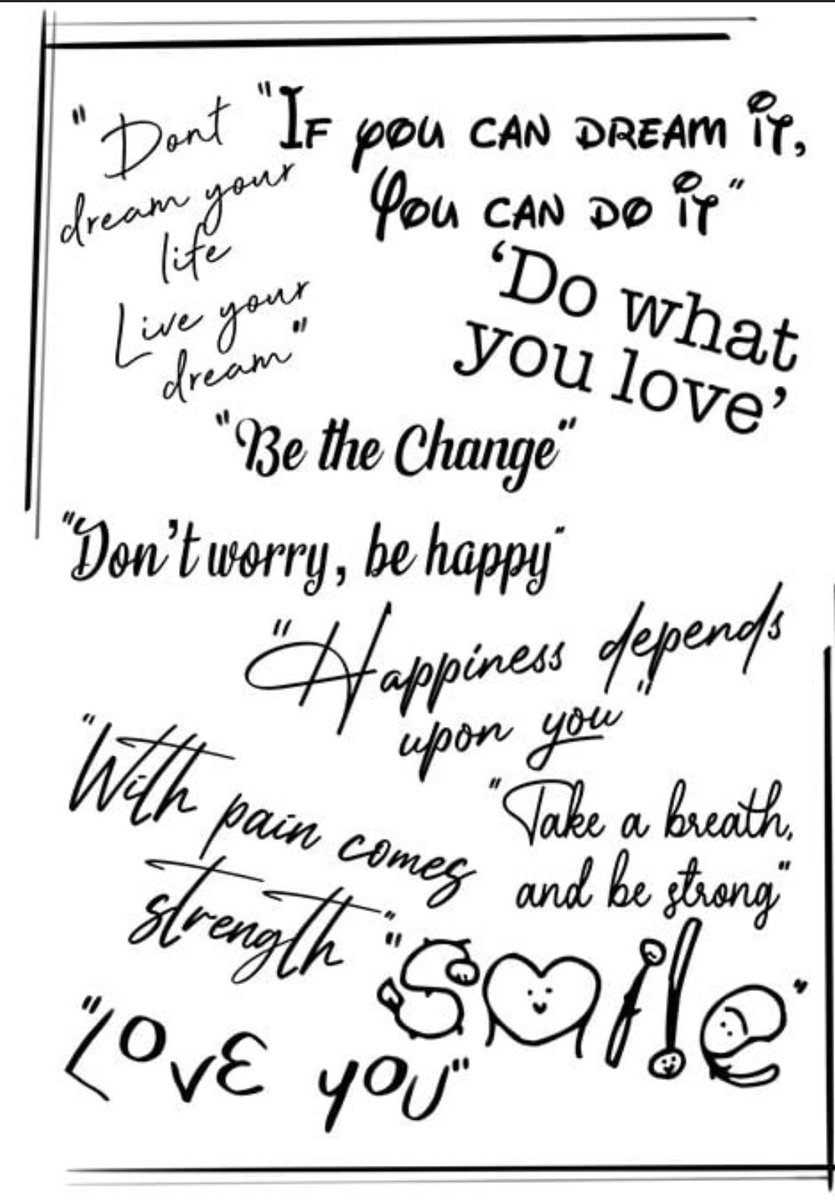 "Dont
dream your
life
Live your
dream"
"IF YOU CAN DREAM IT,
YOU CAN DO IT"
'Do what
you love'
"Be the Change"
"Don't worry, be happy"
"Happiness depends
upon you"
"With pain comes
strength"
"Take a breath,
and be strong"
"smile"
"LOVE YOU"